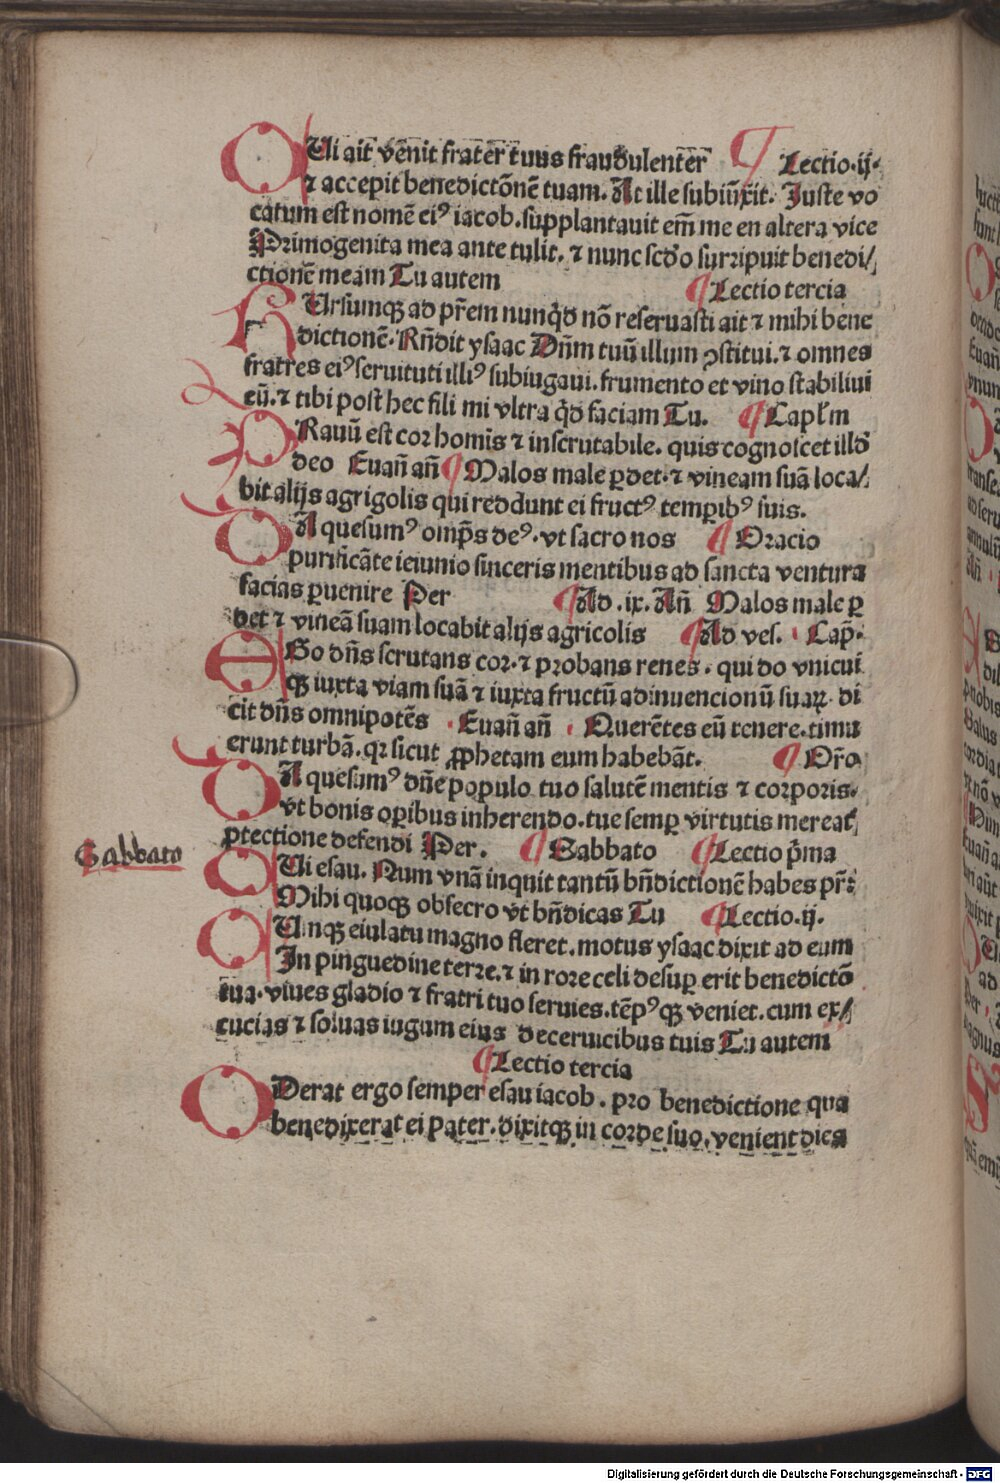 QUi ait venit frater tuus fraudulenter ¶ Lectio .ij.
⁊ accepit benedictōnē tuam. At ille subiūxit. Juste vo
catum est nomē eiꝰ iacob. supplantauit em̄ me en altera vice
Primogenita mea ante tulit. ⁊ nunc scd̄o surripuit benedi/
ctionē meam Tu autem ¶ Lectio tercia
RUrsumqꝫ ad pr̄em nunqd̄ nō reseruasti ait ⁊ mihi bene
dictionē. Rn̄dit ysaac Dn̄m tuū illum ꝯstitui. ⁊ omnes
fratres eiꝰ seruituti illiꝰ subiugaui. frumento et vino stabiliui
eū. ⁊ tibi post hec fili mi vltra qd̄ faciam Tu. ¶ Capl̄m
PRauū est cor homīs ⁊ inscrutabile. quis cognoscet illd̄
deo Euan̄ an̄ ¶ Malos male ꝑdet. ⁊ vineam suā loca/
bit alijs agrigolis qui reddunt ei fructꝰ tempibꝰ suis.
DA quesumꝰ omp̄s deꝰ. vt sacro nos ¶ Oracio
purificāte ieiunio sinceris mentibus ad sancta ventura
facias ꝑuenire Per ¶ Ad .ix. An̄ Malos male ꝑ
det ⁊ vineā suam locabit alijs agricolis ¶ Ad ves. Cap̄.
EGo dn̄s scrutans cor. ⁊ probans renes. qui do vnicui
qꝫ iuxta viam suā ⁊ iuxta fructū adinuencionū suaꝝ di
cit dn̄s omnipotēs Euan̄ an̄ Querētes eū tenere. timu
erunt turbā. qr sicut ꝓphetam eum habebāt. ¶ Or̄o
DA quesumꝰ dn̄e populo tuo salutē mentis ⁊ corporis.
vt bonis oꝑibus inherendo. tue semꝑ virtutis mereat᷑
ꝓtectione defendi Per. ¶ Sabbato ¶ Lectio p̄ma
Sabbato
CUi esau. Num vnā inquit tantū bn̄dictionē habes pr̄:
Mihi quoqꝫ obsecro vt bn̄dicas Tu ¶ Lectio .ij.
CUmqꝫ eiulatu magno fleret. motus ysaac dixit ad eum
In pinguedine terre. ⁊ in rore celi desuꝑ erit benedictō
tua. viues gladio ⁊ fratri tuo seruies. tēpꝰqꝫ veniet. cum ex/
cucias ⁊ soluas iugum eius de ceruicibus tuis Tu autem
¶ Lectio tercia
ODerat ergo semper esau iacob. pro benedictione qua
benedixerat ei pater. dixitqꝫ in corde suo. venient dies
Digitalisierung gefördert durch die Deutsche Forschungsgemeinschaft - DFG